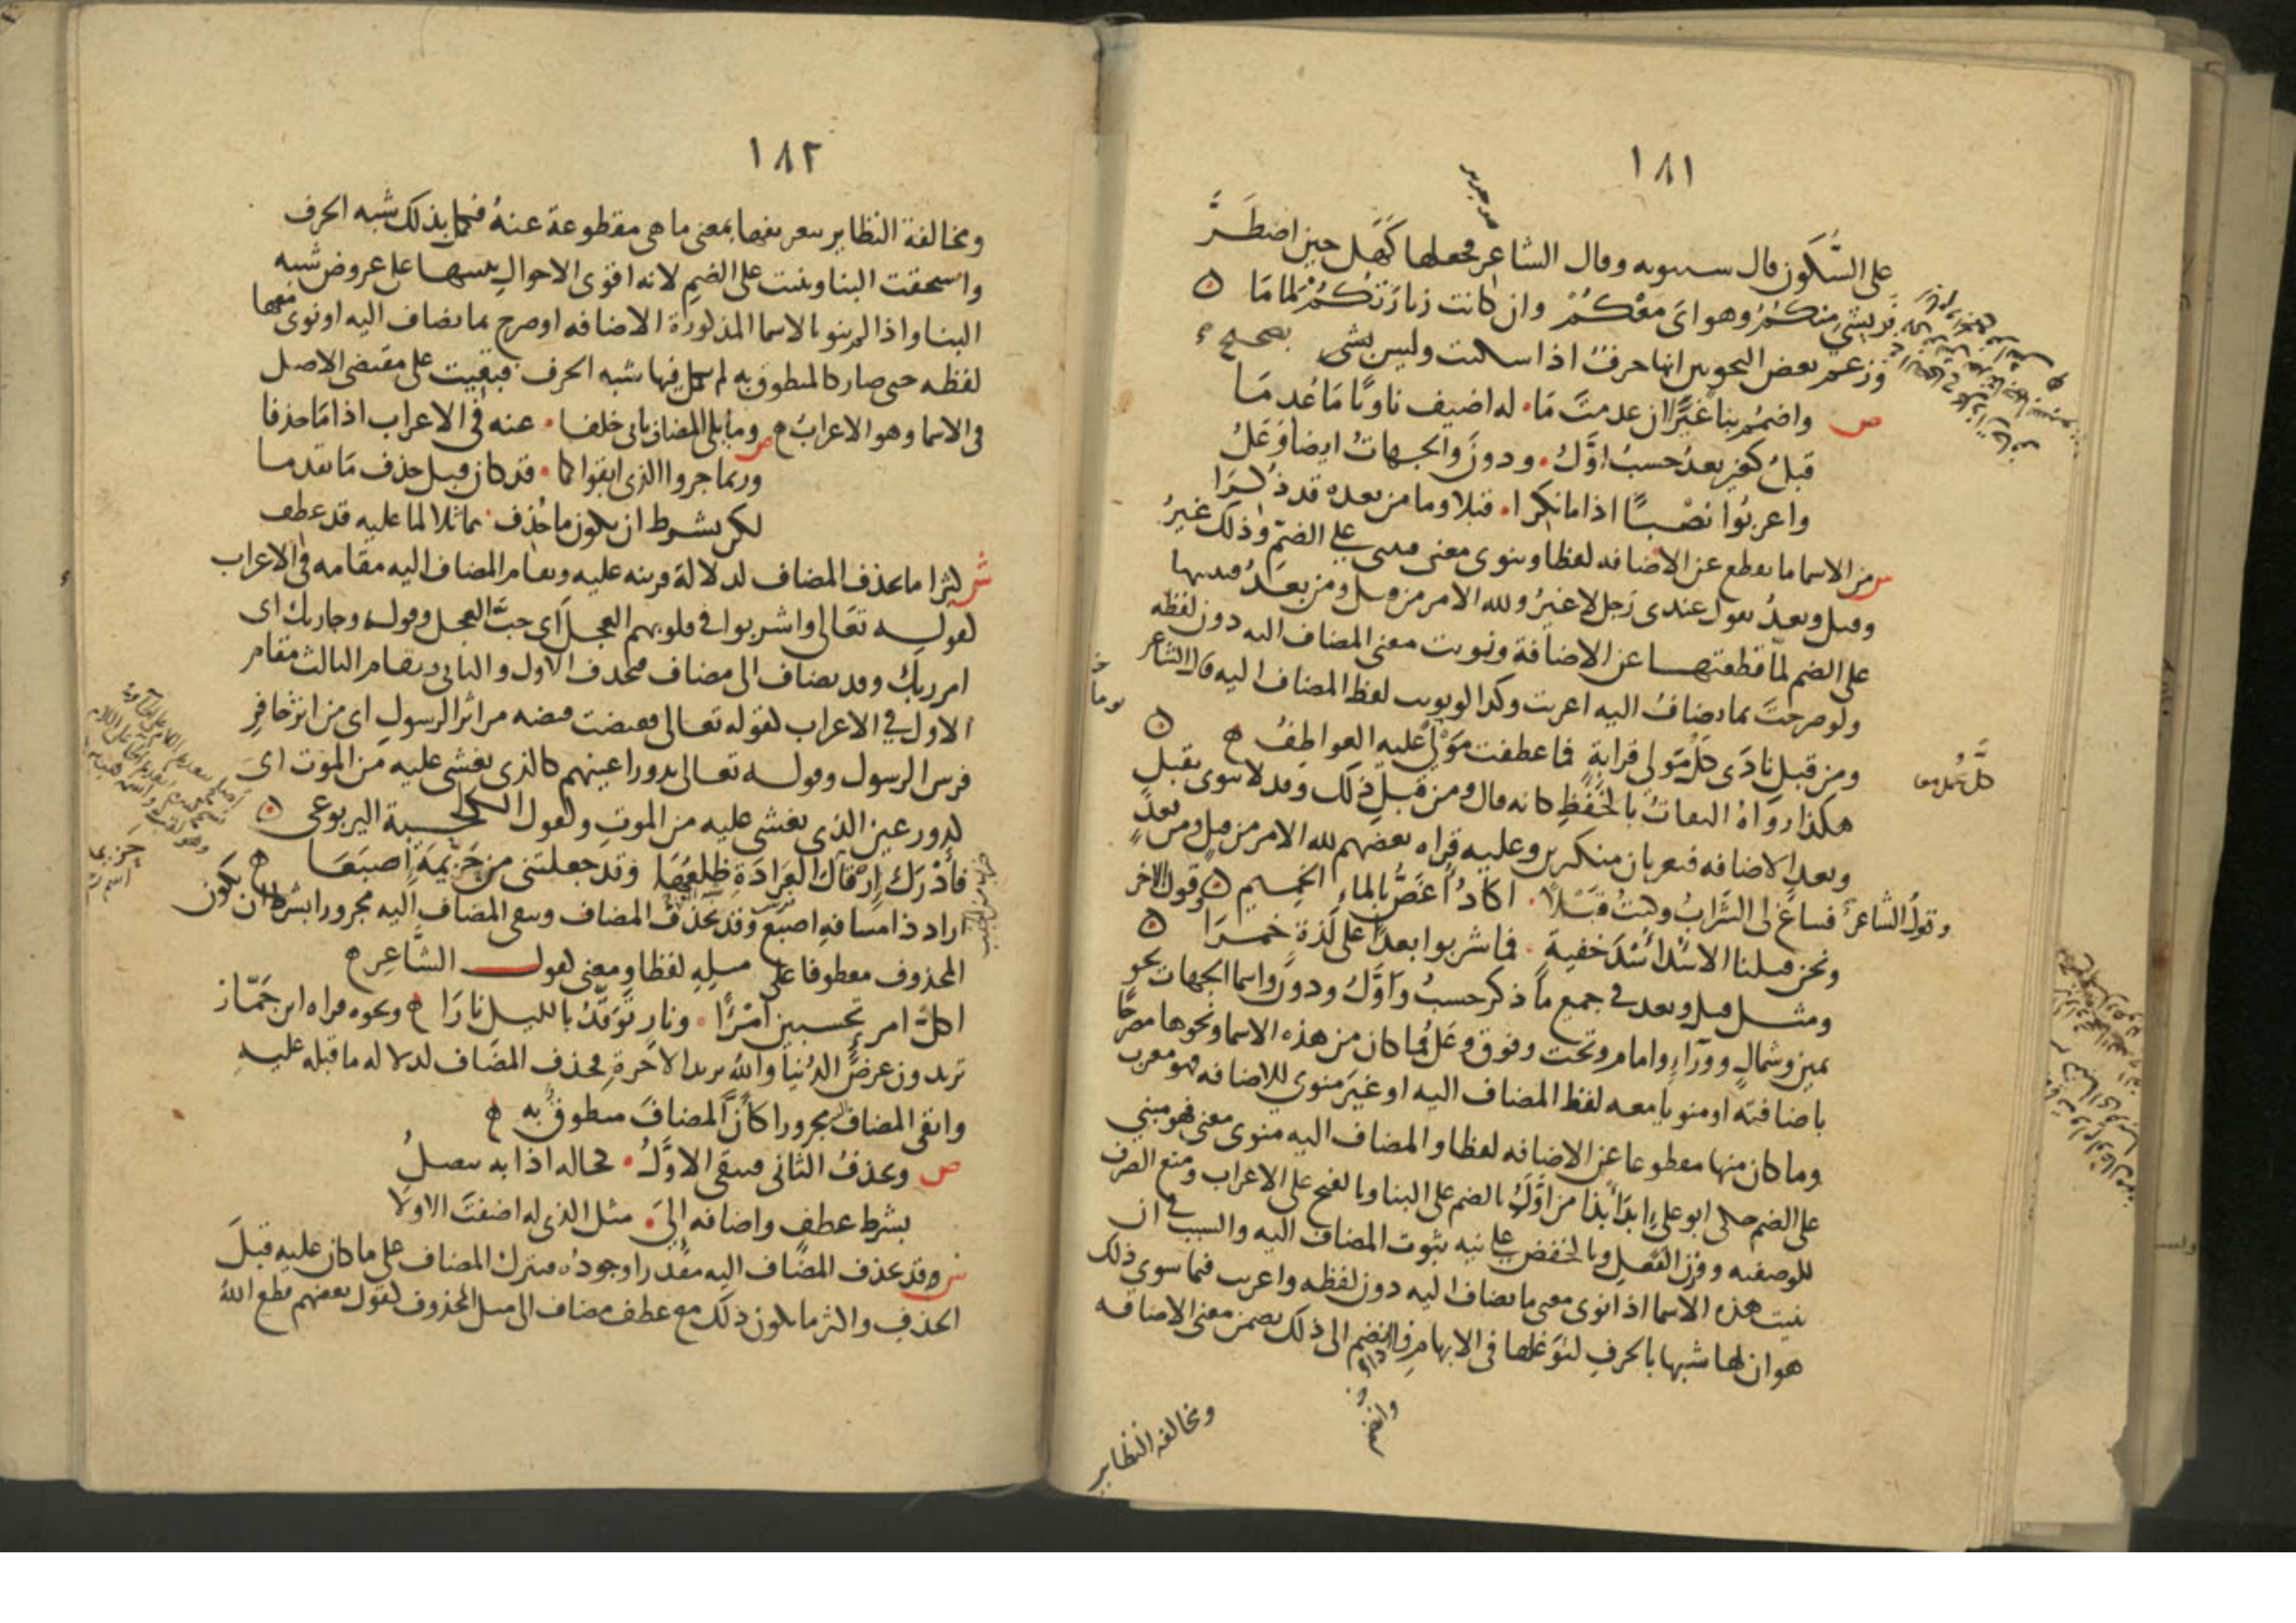 ١٨١
على السكون قال سيبويه وقال الشاعر فجعلها كهل حين اضطر
فريشي منكم وهواي معكم وان كانت زيارتكم لماما
وزعم بعض النحويين انها حرف اذا سكنت وليس بشي بصحيح
ص واضمم بناء غيرا ان عدمت ما له اضيف ناويا ما عدما
قبل كغير بعد حسب اول ودون والجهات ايضا وعل
واعربوا نصبا اذا ما نكرا قبلا وما من بعده قد ذكرا
ش من الاسما ما يقطع عن الاضافه لفظا وينوى معنى فيبنى على الضم وذلك غير
وقبل وبعد تقول عندى رجل لا غير ولله الامر من قبل ومن بعد فتبنيها
على الضم لما قطعتها عن الاضافة ونويت معنى المضاف اليه دون لفظه
ولو صرحت بما يضاف اليه اعربت وكذا لو نويت لفظ المضاف اليه قال الشاعر
ومن قبل نادى كل مولى قرابة فما عطفت مولى عليه العواطف
هكذا رواه الثقات بالخفض كانه قال ومن قبل ذلك وقد لا ينوى بقبل
وبعد الاضافه فيعربان منكرين وعليه قراه بعضهم لله الامر من قبل ومن بعد
وقول الشاعر فساغ لى الشراب وكنت قبلا اكاد اغص بالماء الحميم وقول الاخر
ونحن قتلنا الاسد اسد خفية فما شربوا بعدا على لذة خمرا
ومثل قبل وبعد في جميع ما ذكر حسب واول ودون واسما الجهات نحو
يمين وشمال وورآء وامام وتحت وفوق وعل فما كان من هذه الاسما ونحوها مصرحا
باضافته او منويا معه لفظ المضاف اليه او غير منوي للاضافه فهو معرب
وما كان منها مقطوعا عن الاضافه لفظا والمضاف اليه منوى معنى فهو مبني
على الضم حكى ابو علي ابدأ بذا من اول بالضم على البنا وبالفتح على الاعراب ومنع الصرف
للوصفيه ووزن الفعل وبالخفض على نيه ثبوت المضاف اليه والسبب في ان
بنيت هذه الاسما اذا نوى معنى ما يضاف اليه دون لفظه واعربت فيما سوى ذلك
هو ان لها شبها بالحرف لتوغلها في الابهام فاذا انضم الى ذلك تضمن معنى الاضافه
ومخالفه النظاير
١٨٢
ومخالفة النظاير بتعريفها بمعنى ما هى مقطوعة عنه فكمل بذلك شبه الحرف
واستحقت البنا وبنيت على الضم لانه اقوى الاحوال تنبيها على عروض شبه
البنا واذا لم ينو بالاسما المذكورة الاضافه او صرح بما يضاف اليه او نوى معها
لفظه حتى صار كالمنطوق به لم يكمل فيها شبه الحرف فبقيت على مقتضى الاصل
فى الاسما وهو الاعراب ص وما يلى المضاف ياتى خلفا عنه فى الاعراب اذا ما حذفا
وربما جروا الذى ابقوا كما قد كان قبل حذف ما تقدما
لكن بشرط ان يكون ما حذف مماثلا لما عليه قد عطف
ش كثيرا ما يحذف المضاف لدلالة قرينه عليه ويقام المضاف اليه مقامه فى الاعراب
كقوله تعالى واشربوا فى قلوبهم العجل اى حب العجل وقوله وجا ربك اى
امر ربك وقد يضاف الى مضاف فيحذف الاول والثاني ويقام الثالث مقام
الاول في الاعراب كقوله تعالى فقبضت قبضه من اثر الرسول اى من اثر حافر
فرس الرسول وقوله تعالى تدور اعينهم كالذى يغشى عليه من الموت اى
كدور عين الذى يغشى عليه من الموت وكقول الكلحبة اليربوعى
فادرك ارقال العرادة ظلعها وقد جعلتنى من حزيمة اصبعا
اراد ذا مسافه اصبع وقد يحذف المضاف ويبقى المضاف اليه مجرورا بشرط ان يكون
المحذوف معطوفا على مثله لفظا ومعنى كقول الشاعر
اكل امرء تحسبين امرءا ونار توقد بالليل نارا ونحوه قراه ابن جماز
تريدون عرض الدنيا والله يريد الاخرة فحذف المضاف لدلاله ما قبله عليه
وابقى المضاف مجرورا كأن المضاف منطوق به
ص ويحذف الثانى فيبقى الاول كحاله اذا به يتصل
بشرط عطف واضافه الى مثل الذى له اضفت الاولا
ش وقد يحذف المضاف اليه مقدرا وجوده فيترك المضاف على ما كان عليه قبل
الحذف واكثر ما يكون ذلك مع عطف مضاف الى مثل المحذوف كقول بعضهم قطع الله